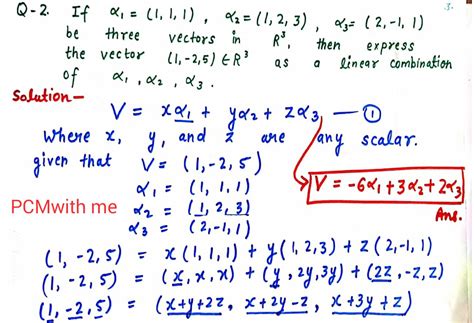 3.
Q-2. If α₁ = (1, 1, 1) , α₂ = (1, 2, 3) , α₃ = (2, -1, 1)
be three vectors in R³, then express
the vector (1, -2, 5) ∈ R³ as a linear combination
of α₁ , α₂ , α₃ .
Solution —
V = xα₁ + yα₂ + zα₃ — ①
where x, y, and z are any scalar.
given that V = (1, -2, 5)
α₁ = (1, 1, 1)
V = -6α₁ + 3α₂ + 2α₃
Ans.
PCMwith me
α₂ = (1, 2, 3)
α₃ = (2, -1, 1)
(1, -2, 5) = x(1, 1, 1) + y(1, 2, 3) + z(2, -1, 1)
(1, -2, 5) = (x, x, x) + (y, 2y, 3y) + (2z, -z, z)
(1, -2, 5) = (x+y+2z, x+2y-z, x+3y+z)